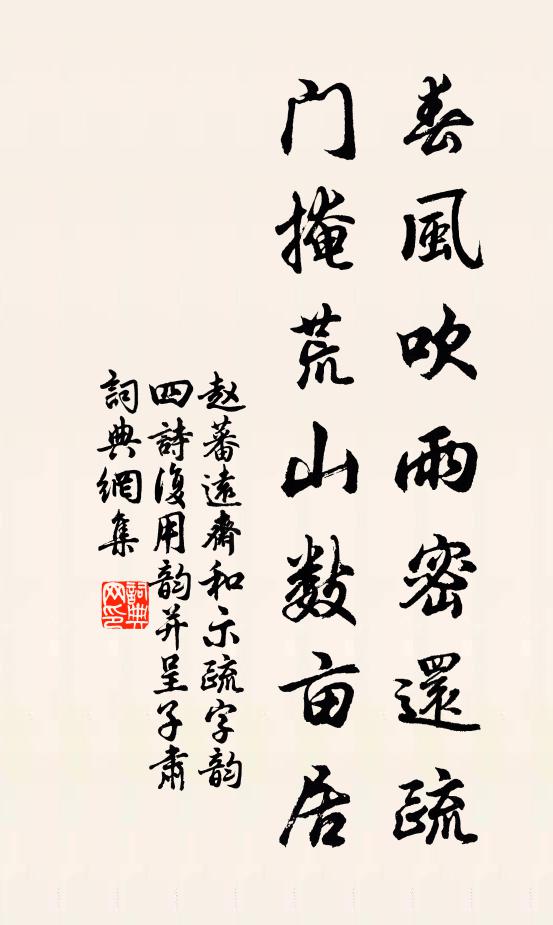 春風吹雨密還疏
门掩荒山数亩居
赵蕃遠齋和示疏字韵
四詩復用韵并呈子肅
詞典網集
詞典
网印